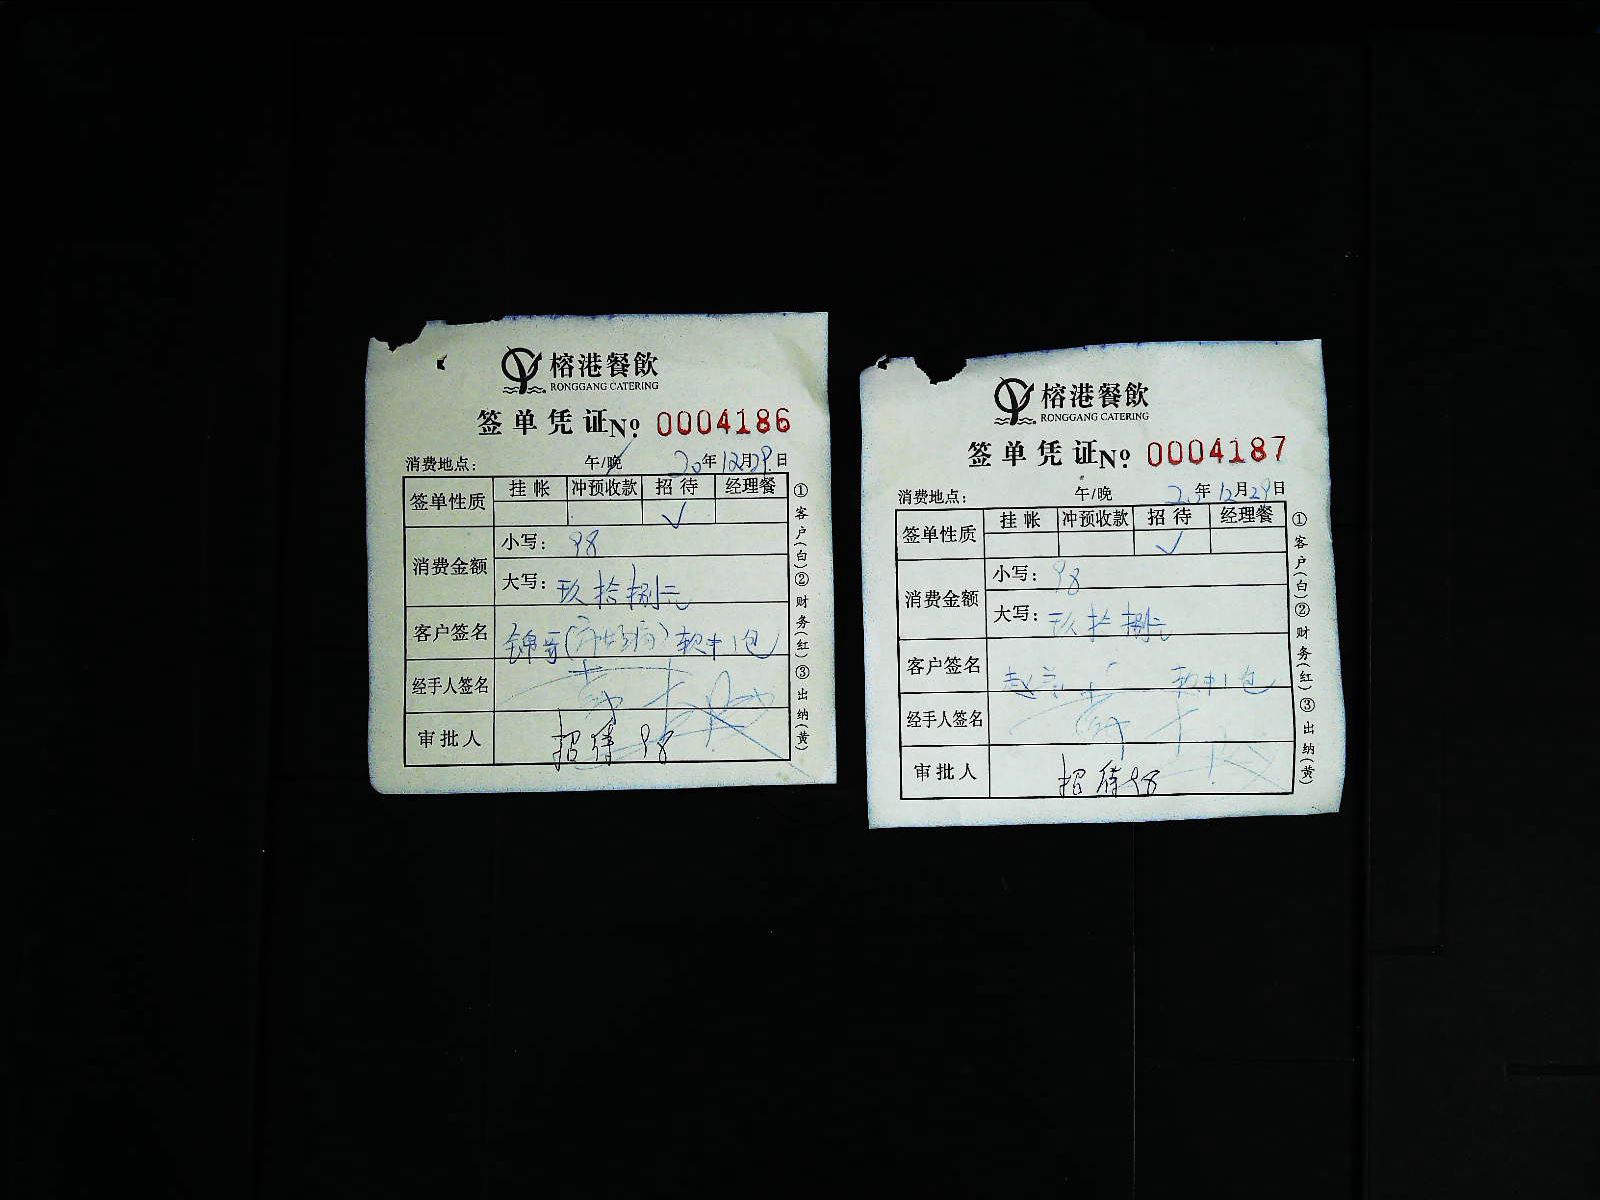 榕港餐飲
RONGGANG CATERING
签单凭证 No 0004186
消费地点： 午/晚 20年12月29日
签单性质 挂帐 冲预收款 招待 经理餐
✓
消费金额 小写：98
大写：玖拾捌元
客户签名 锦哥( ) 软中1包
经手人签名
审批人 招待 98
①客户(白)②财务(红)③出纳(黄)
榕港餐飲
RONGGANG CATERING
签单凭证 No 0004187
消费地点： 午/晚 20年12月29日
签单性质 挂帐 冲预收款 招待 经理餐
✓
消费金额 小写：98
大写：玖拾捌元
客户签名 软中1包
经手人签名
审批人 招待98
①客户(白)②财务(红)③出纳(黄)